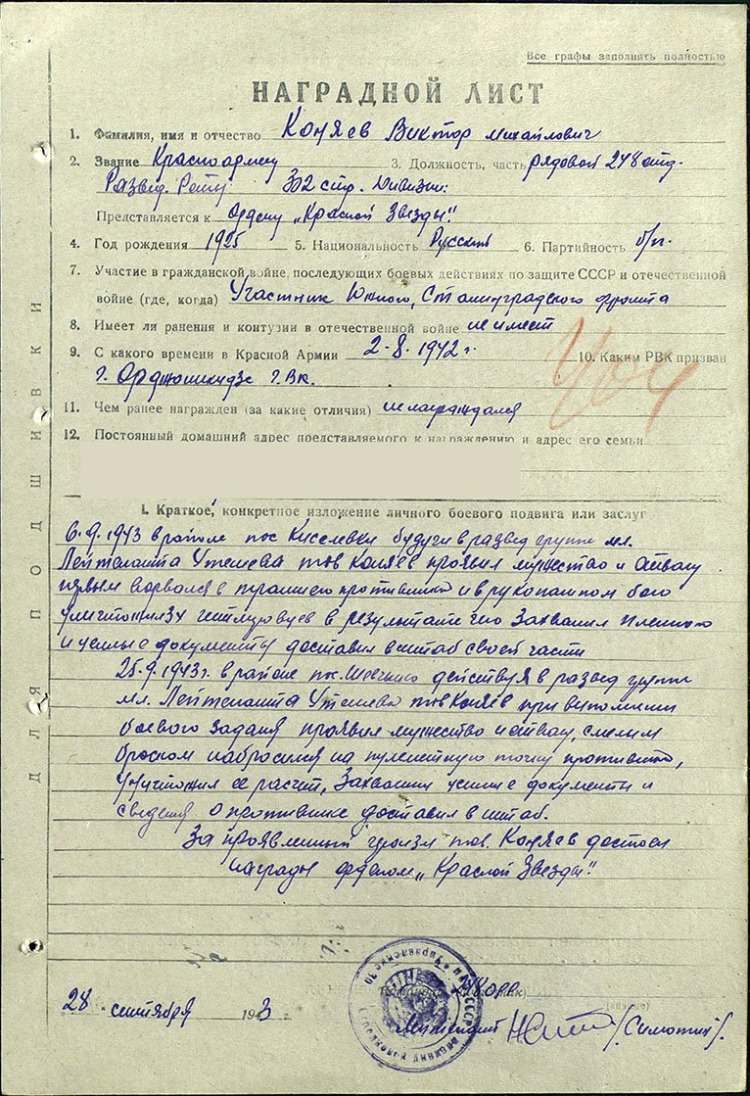 Все графы заполнять полностью
НАГРАДНОЙ ЛИСТ
1. Фамилия, имя и отчество Коняев Виктор Михайлович
2. Звание Красноармеец 3. Должность, часть рядовой 248 отд.
Развед. Роты 302 стр. Дивизии.
Представляется к Ордену „Красной Звезды"
4. Год рождения 1925 5. Национальность Русский 6. Партийность б/п.
7. Участие в гражданской войне, последующих боевых действиях по защите СССР и отечественной
войне (где, когда) Участник Южного, Сталинградского фронта
8. Имеет ли ранения и контузии в отечественной войне не имеет
9. С какого времени в Красной Армии 2-8-1942 г. 10. Каким РВК призван
г. Орджоникидзе Г.ВК.
11. Чем ранее награжден (за какие отличия) не награждался
12. Постоянный домашний адрес представляемого к награждению и адрес его семьи
I. Краткое, конкретное изложение личного боевого подвига или заслуг
6.9.1943 в районе пос Киселевки будучи в развед группе мл.
Лейтенанта Утешева тов Коняев проявил мужество и отвагу
первым ворвался в траншею противника и в рукопашном бою
уничтожил гитлеровцев в результате чего Захватил пленного
и ценные документы доставил в штаб своей части
25.9.1943г. в районе пос. действуя в развед группе
мл. Лейтенанта Утешева тов Коняев при выполнении
боевого задания проявил мужество и отвагу, смелым
броском набросился на пулеметную точку противника,
уничтожил ее расчет, Захватил ценные документы и
сведения о противнике доставил в штаб.
За проявленный героизм тов. Коняев достоен
награды орденом „Красной Звезды"
28 сентября 1943 г.
Лейтенант /Симотин/.
ДЛЯ ПОДШИВКИ